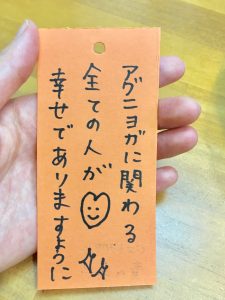 アグニヨガに関わる
全ての人が
幸せでありますように